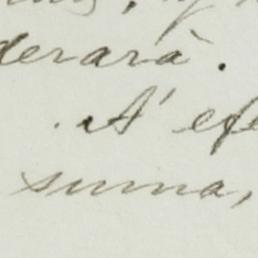 derarà.
A' efe
suma,